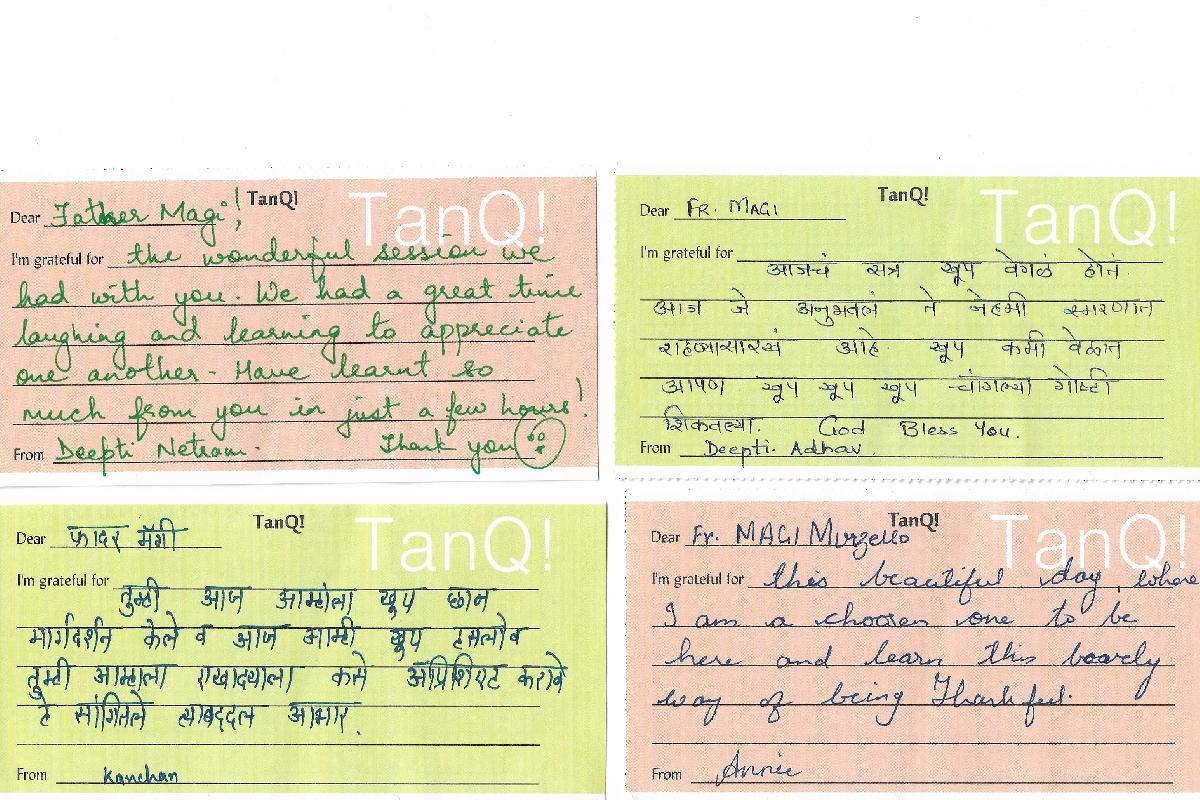 TanQ!
TanQ!
Dear Father Magi!
I'm grateful for the wonderful session we
had with you. We had a great time
laughing and learning to appreciate
one another - Have learnt so
much from you in just a few hours!
From Deepti Netram. Thank you
TanQ!
TanQ!
Dear FR. MAGI
I'm grateful for
आजचं सत्र खूप वेगळं होतं.
आज जे अनुभवलं ते नेहमी स्मरणात
राहण्यासारखं आहे. खूप कमी वेळात
आपण खूप खूप खूप चांगल्या गोष्टी
शिकवल्या. God Bless You.
From Deepti. Adhav.
TanQ!
TanQ!
Dear फादर मॅगी
I'm grateful for
तुम्ही आज आम्हाला खूप छान
मार्गदर्शन केले व आज आम्ही खूप हसलो व
तुम्ही आम्हाला एखादयाला कसे अॅप्रिशिएट करावे
हे सांगितले त्याबद्दल आभार.
From Kanchan
TanQ!
TanQ!
Dear Fr. MAGI Murzello
I'm grateful for this beautiful day, where
I am a choosen one to be
here and learn this
way of being Thankful.
From Annie